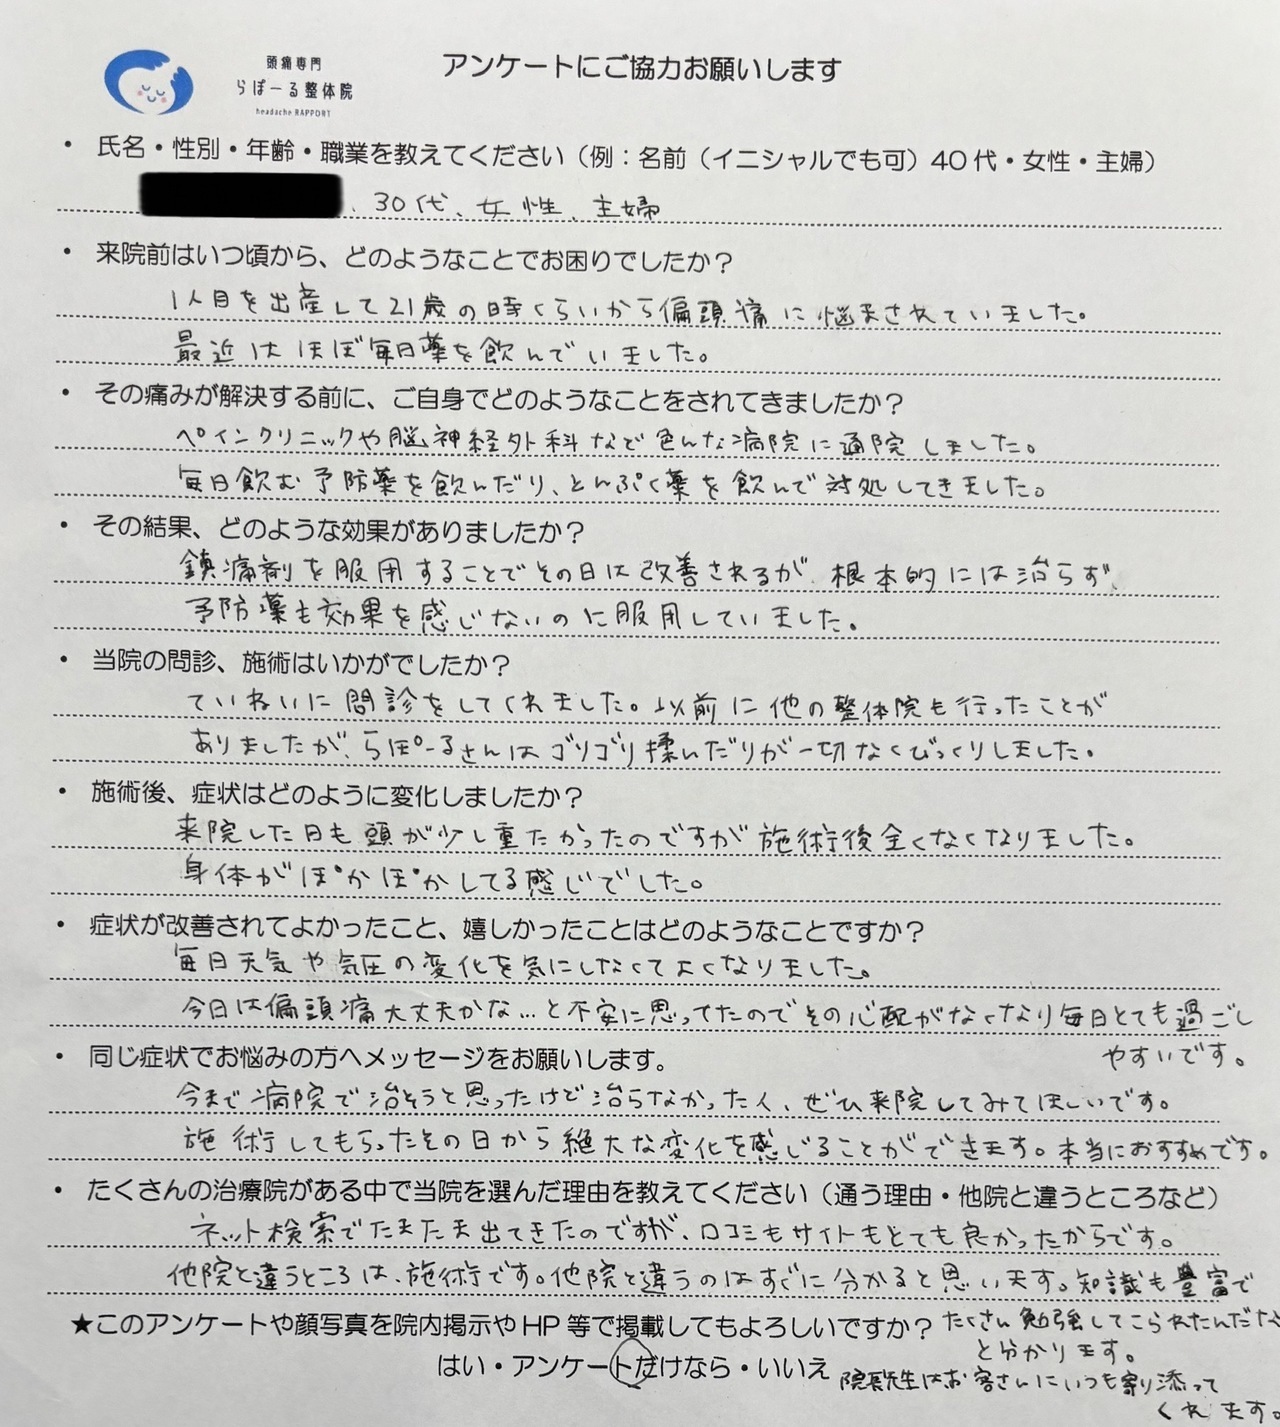 頭痛専門
らぽーる整体院
headache RAPPORT
アンケートにご協力お願いします
・ 氏名・性別・年齢・職業を教えてください（例：名前（イニシャルでも可）40代・女性・主婦）
、30代、女性、主婦
・ 来院前はいつ頃から、どのようなことでお困りでしたか？
1人目を出産して21歳の時くらいから偏頭痛に悩まされていました。
最近はほぼ毎日薬を飲んでいました。
・ その痛みが解決する前に、ご自身でどのようなことをされてきましたか？
ペインクリニックや脳神経外科などで色んな病院に通院しました。
毎日飲む予防薬を飲んだり、とんぷく薬を飲んで対処してきました。
・ その結果、どのような効果がありましたか？
鎮痛剤を服用することでその日は改善されるが、根本的には治らず、
予防薬も効果を感じないのに服用していました。
・ 当院の問診、施術はいかがでしたか？
ていねいに問診をしてくれました。以前に他の整体院も行ったことが
ありましたが、らぽーるさんはゴリゴリ揉んだりが一切なくびっくりしました。
・ 施術後、症状はどのように変化しましたか？
来院した日も頭が少し重たかったのですが施術後全くなくなりました。
身体がぽかぽかしてる感じでした。
・ 症状が改善されてよかったこと、嬉しかったことはどのようなことですか？
毎日天気や気圧の変化を気にしなくてよくなりました。
今日は偏頭痛大丈夫かな…と不安に思ってたのでその心配がなくなり毎日とても過ごし
やすいです。
・ 同じ症状でお悩みの方へメッセージをお願いします。
今まで病院で治そうと思ったけど治らなかった人、ぜひ来院してみてほしいです。
施術してもらったその日から絶大な変化を感じることができます。本当におすすめです。
・ たくさんの治療院がある中で当院を選んだ理由を教えてください（通う理由・他院と違うところなど）
ネット検索でたまたま出てきたのですが、口コミもサイトもとても良かったからです。
他院と違うところは、施術です。他院と違うのはすぐに分かると思います。知識も豊富で
たくさん勉強してこられたんだな
と分かります。
院長先生はお客さんにいつも寄り添って
くれます。
★このアンケートや顔写真を院内掲示やHP等で掲載してもよろしいですか？
はい・アンケートだけなら・いいえ